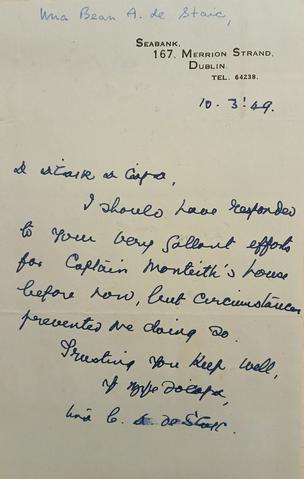 Una Bean A. de Staic,
SEABANK,
167, MERRION STRAND,
DUBLIN.
TEL. 64238.
10.3.'49.
A
I should have responded
to your very gallant efforts
for Captain Monteith's house
before now, but circumstances
prevented me doing so.
Trusting you keep well,
Una C. de Staic.